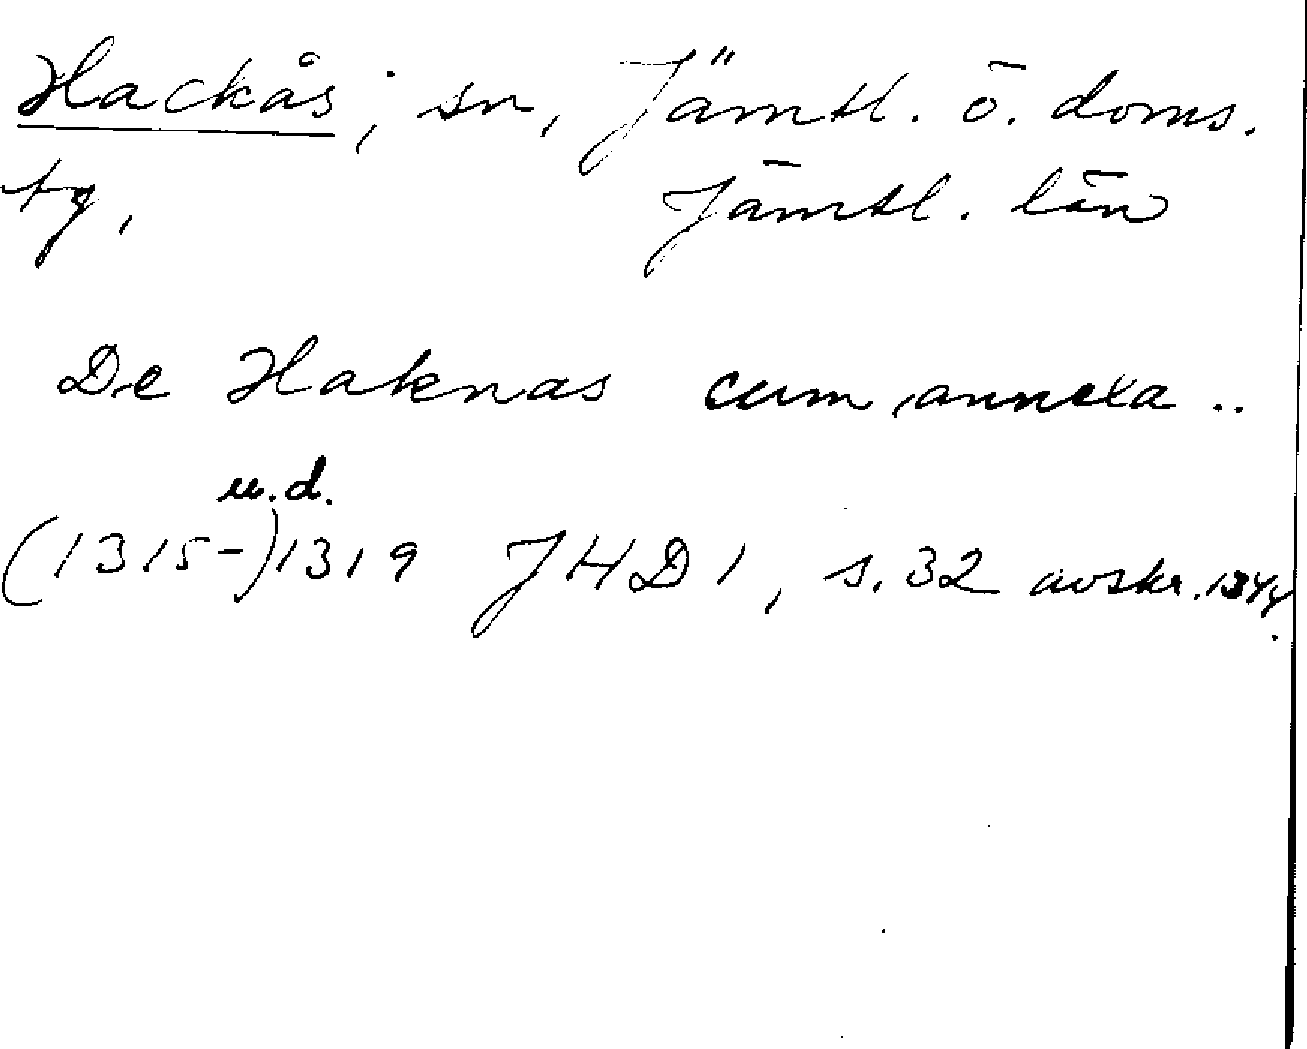 Hackås; sn, Jämtl. ö. doms.
tg, Jämtl. län
De Haknas cum annexa ..
u.d.
(1315-)1319 JHD 1, s. 32 avskr. 1344.